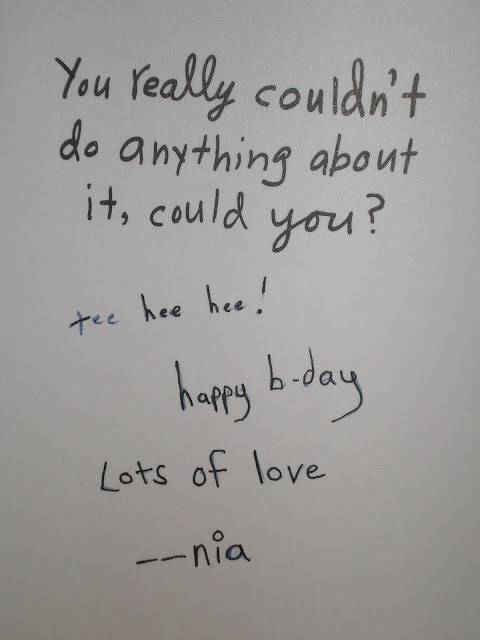 You really couldn't
do anything about
it, could you?
tee hee hee!
happy b-day
Lots of love
--nia